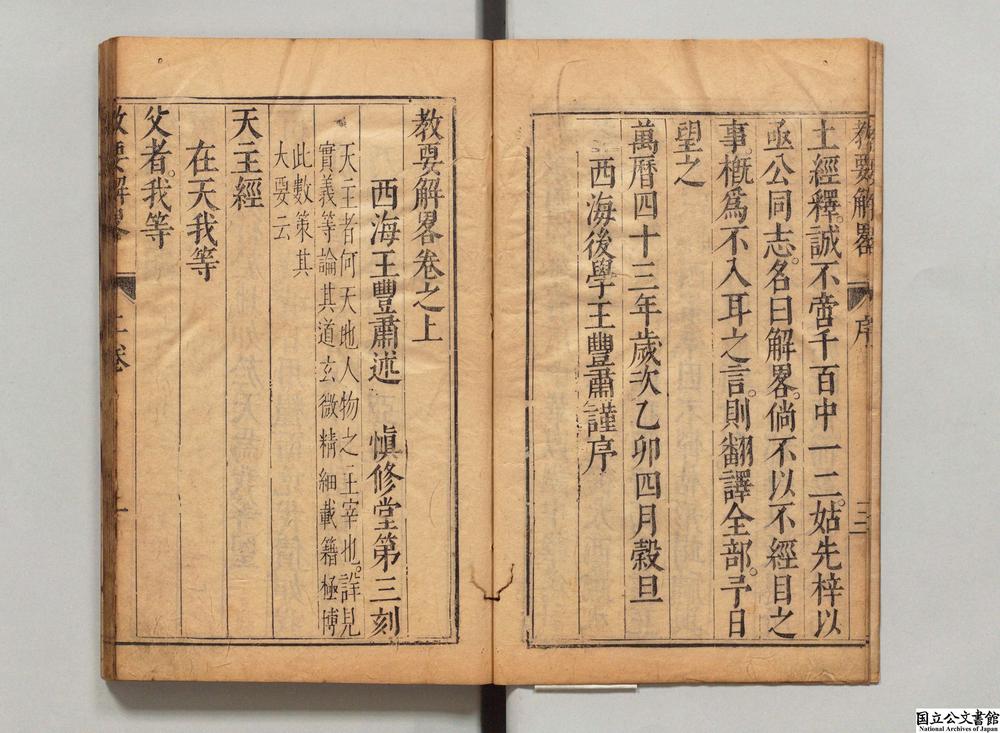 教要解畧 序 三
土經釋。誠不啻千百中一二。姑先梓以
亟公同志。名曰解畧。倘不以不經目之
事。槪爲不入耳之言。則翻譯全部。予日
望之
萬曆四十三年歲次乙卯四月穀旦
西海後學王豐肅謹序
教要解畧卷之上
西海王豐肅述 愼修堂第三刻
天主者何天地人物之主宰也。詳見
實義等論其道玄微精細載籍極博
此數策其
大要云
天主經
在天我等
父者。我等
教要解畧
国立公文書館
National Archives of Japan